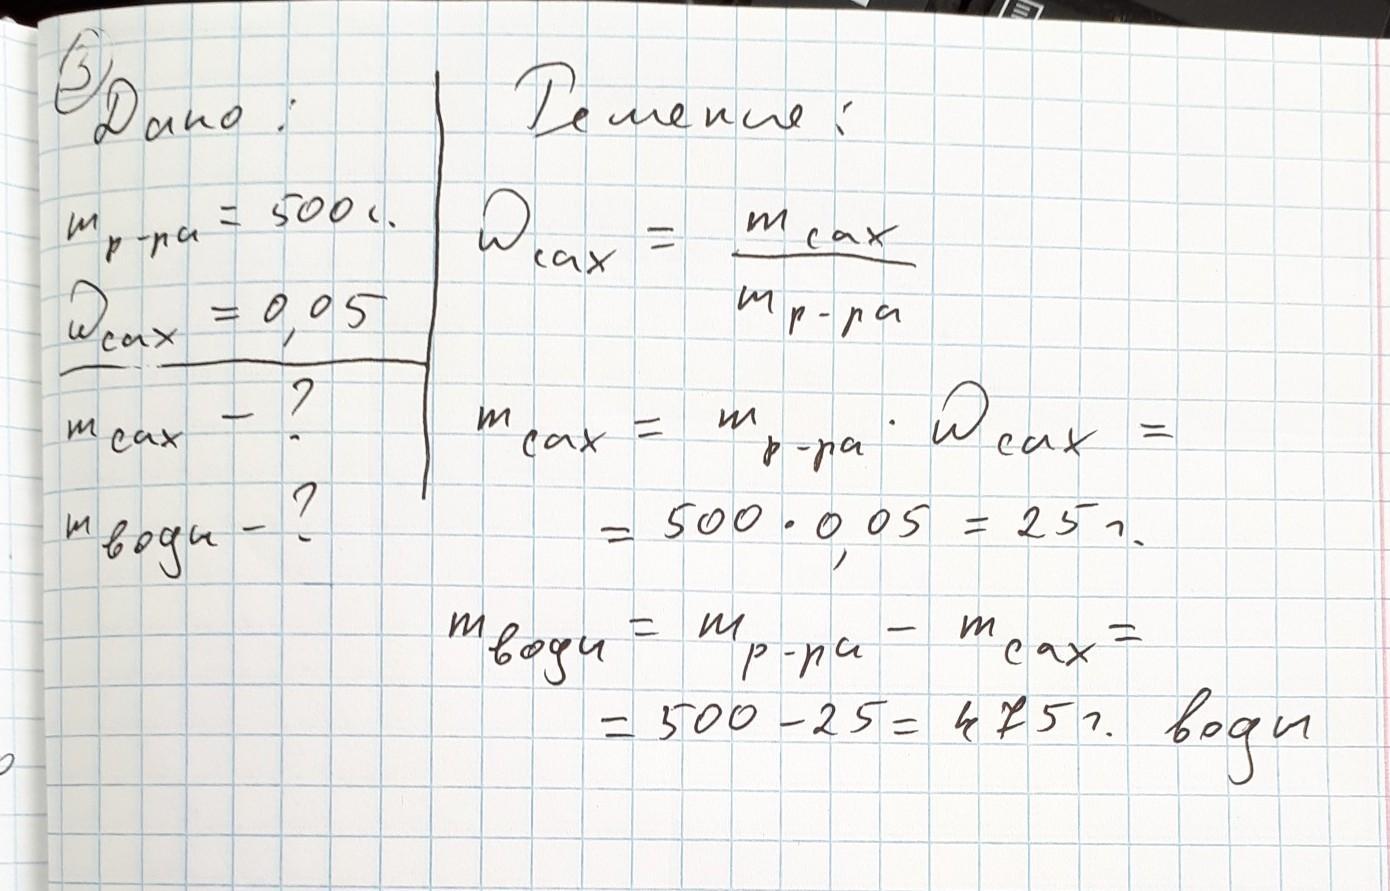 3
Дано:
m р-ра = 500 г.
ω сах = 0,05
m сах - ?
m воды - ?
Решение:
ω сах = m сах / m р-ра
m сах = m р-ра · ω сах =
= 500 · 0,05 = 25 г.
m воды = m р-ра - m сах =
= 500 - 25 = 475 г. воды